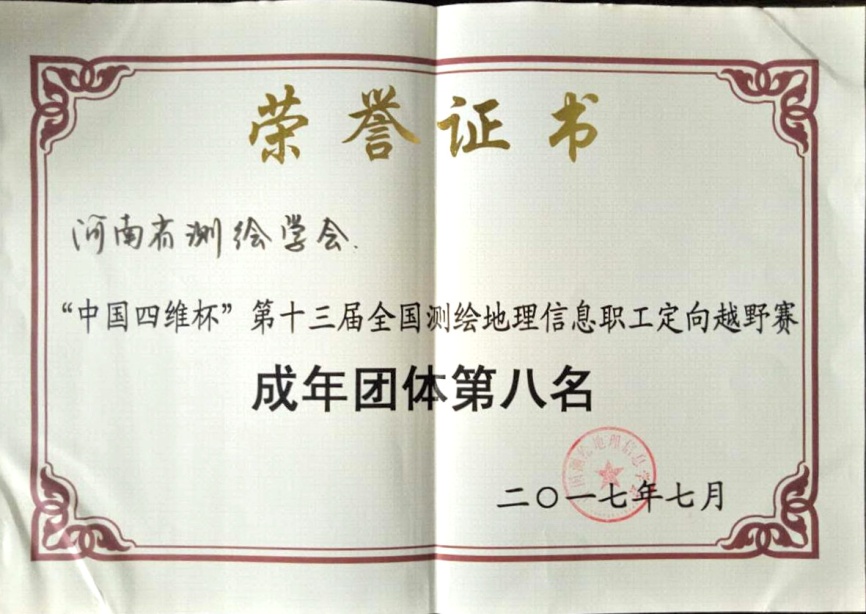 荣誉证书
河南省测绘学会.
“中国四维杯”第十三届全国测绘地理信息职工定向越野赛
成年团体第八名
二〇一七年七月